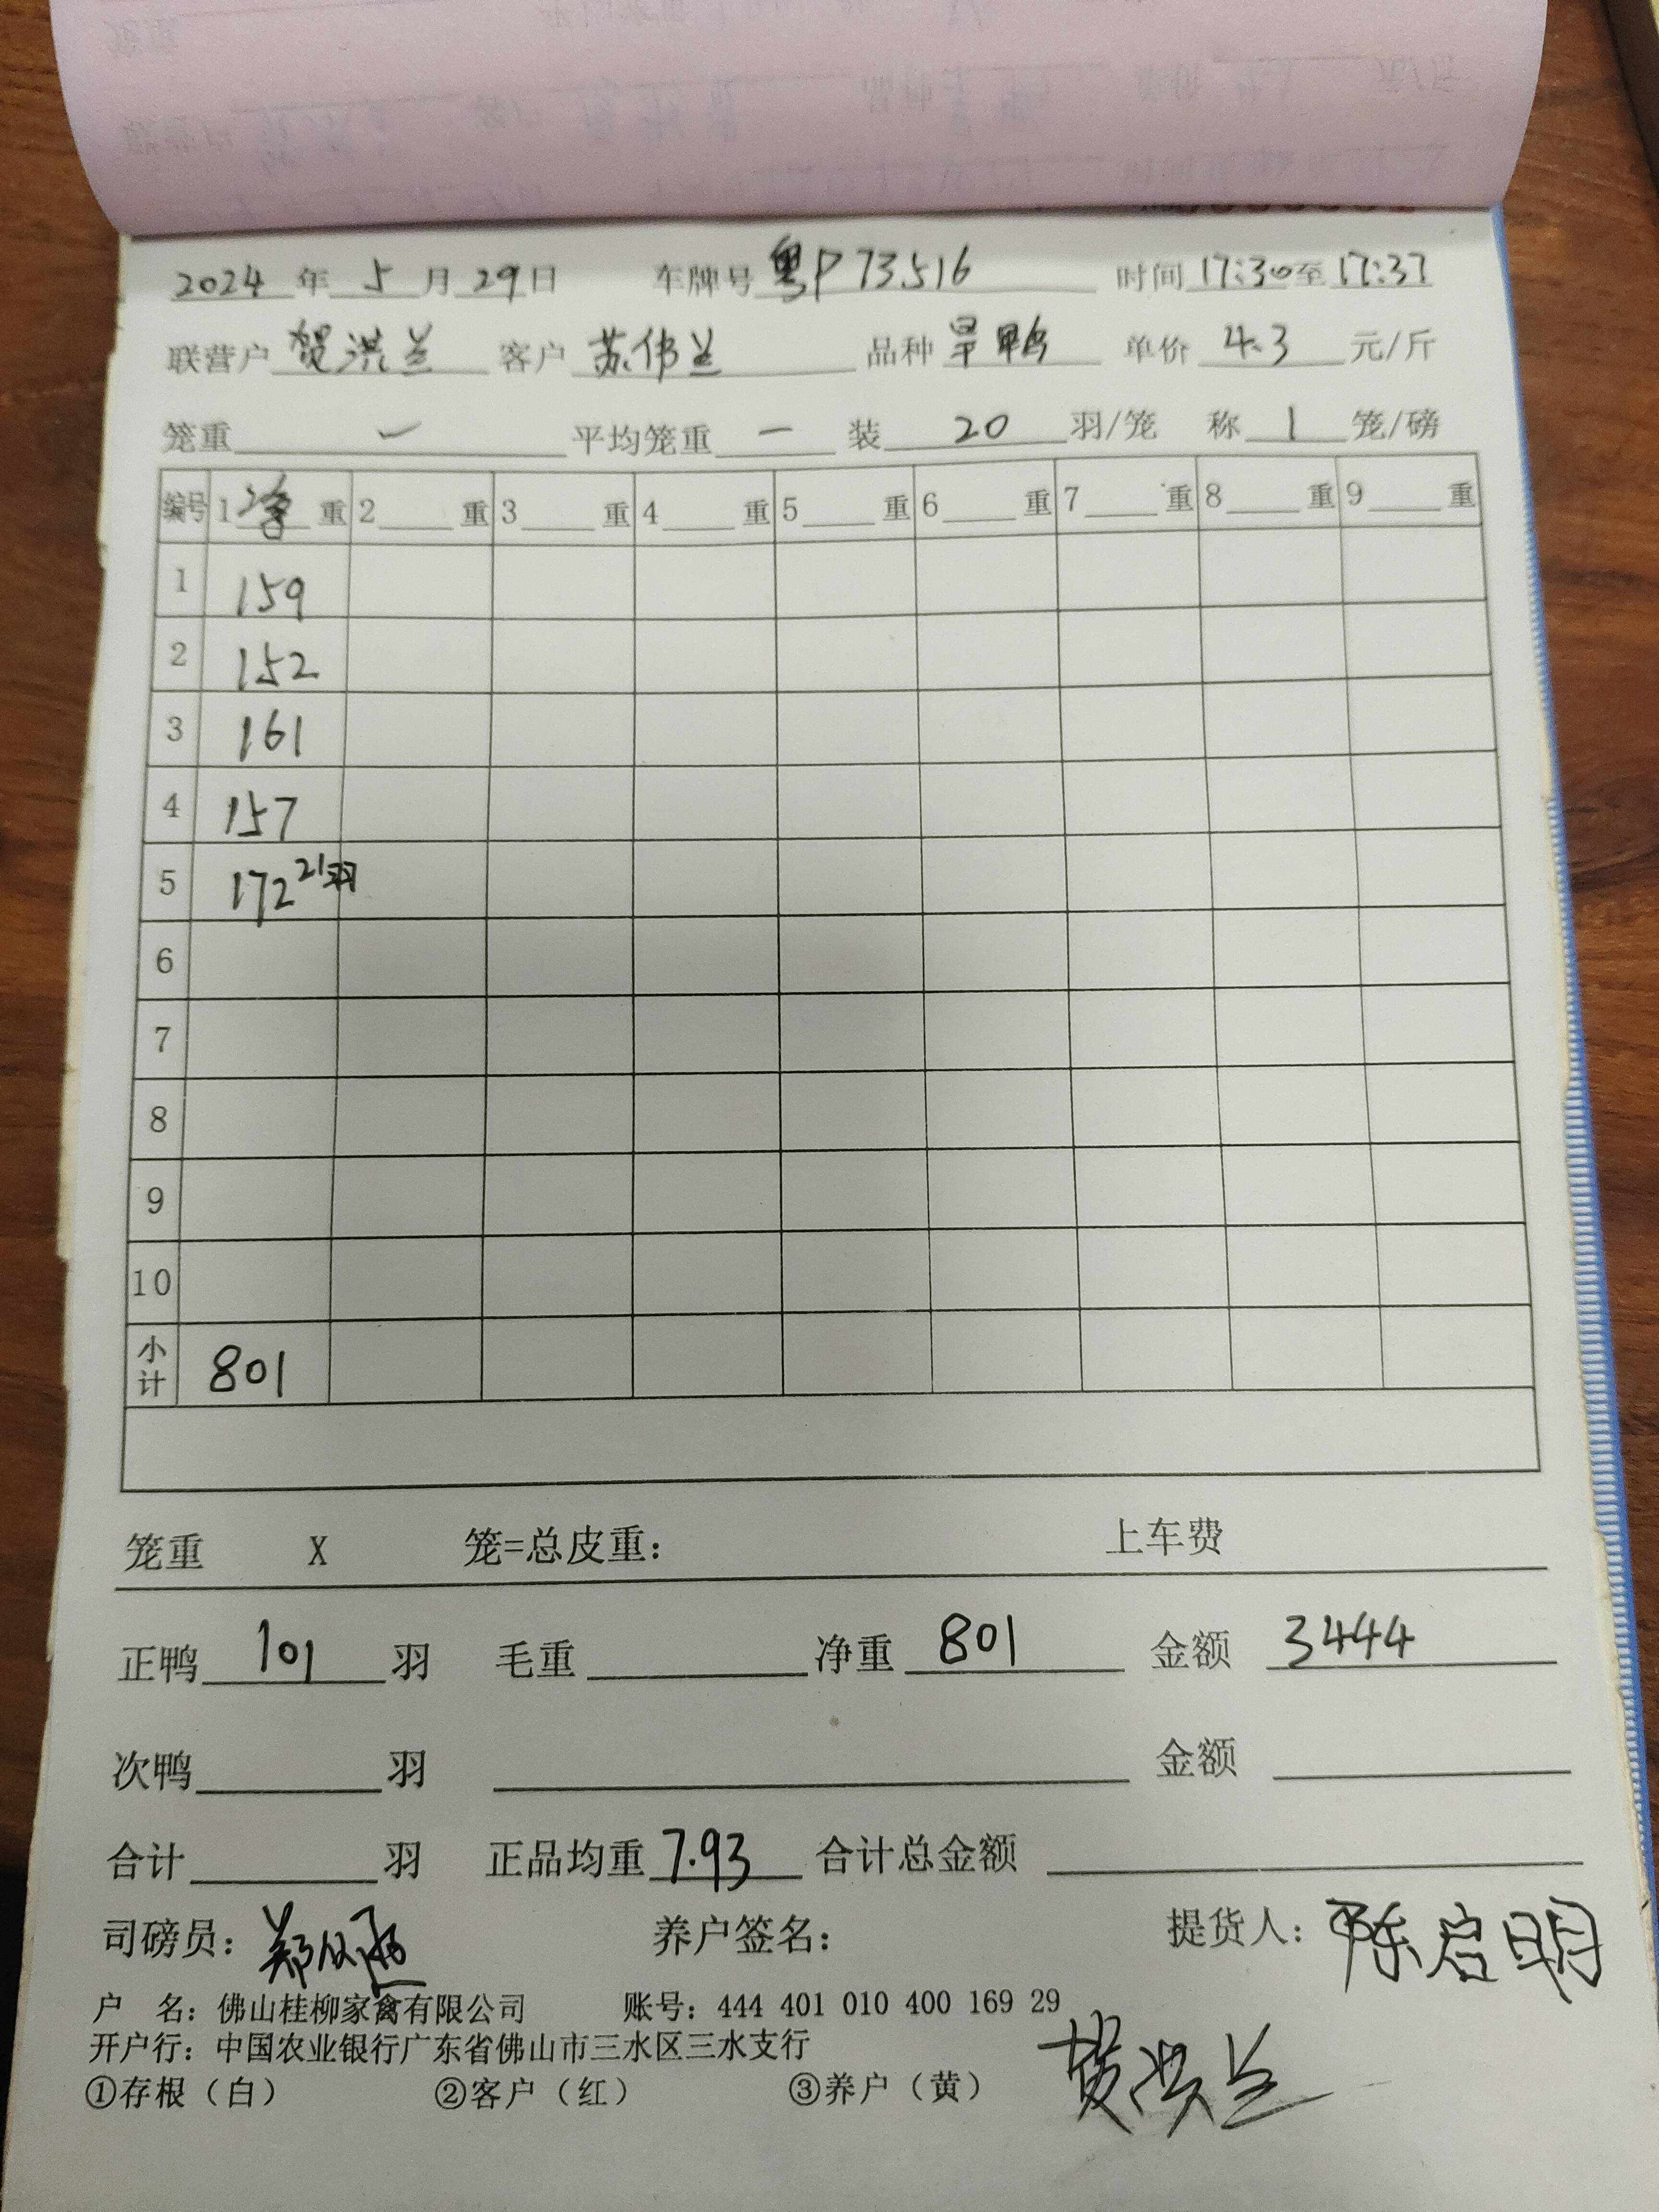 2024年5月29日 车牌号粤P73516 时间17:30至17:37
联营户贺洪兰 客户苏伟兰 品种旱鸭 单价4.3元/斤
笼重 一 平均笼重 一 装20羽/笼 称1笼/磅
编号 1净重 2重 3重 4重 5重 6重 7重 8重 9重
1 159
2 152
3 161
4 157
5 172 21羽
6
7
8
9
10
小计 801
笼重 X 笼=总皮重: 上车费
正鸭101羽 毛重 净重801 金额3444
次鸭 羽 金额
合计 羽 正品均重7.93 合计总金额
司磅员: 郑 养户签名: 提货人: 陈启明
户 名: 佛山桂柳家禽有限公司 账号: 444 401 010 400 169 29
开户行: 中国农业银行广东省佛山市三水区三水支行
贺洪兰
①存根（白） ②客户（红） ③养户（黄）